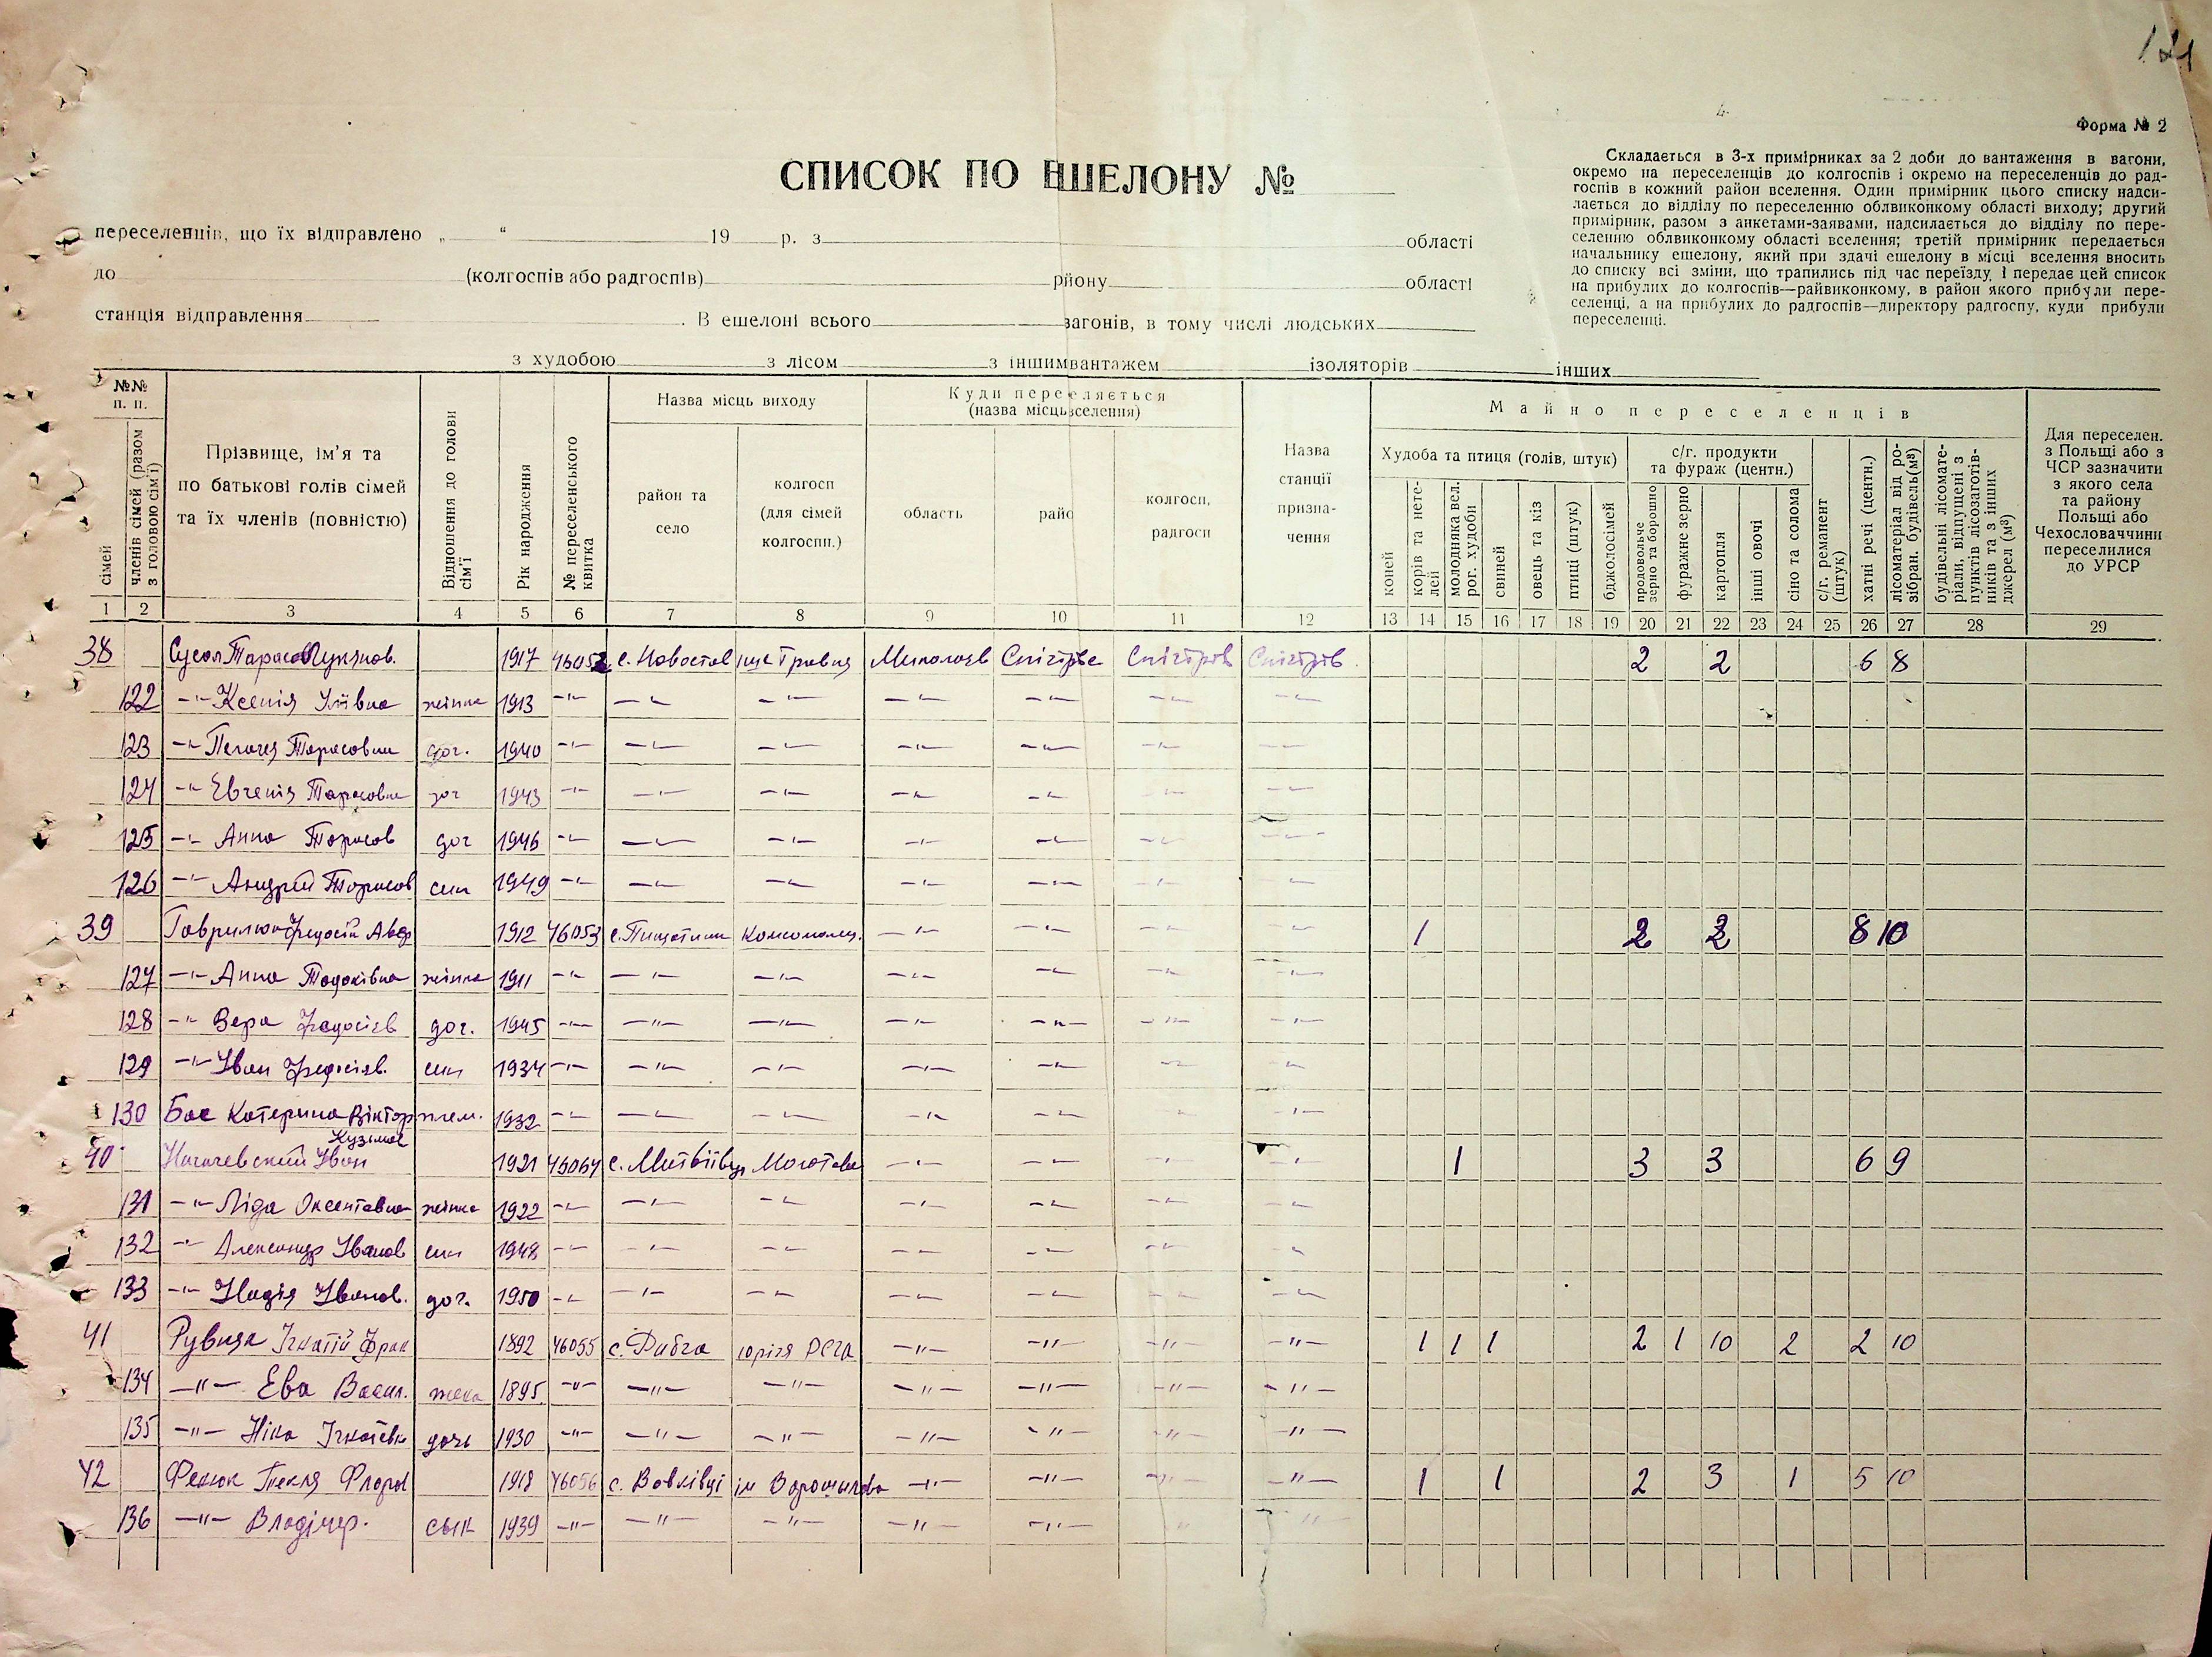 121
Форма № 2
СПИСОК ПО ЕШЕЛОНУ №
Складається в 3-х примірниках за 2 доби до вантаження в вагони,
окремо на переселенців до колгоспів і окремо на переселенців до рад-
госпів в кожний район вселення. Один примірник цього списку надси-
лається до відділу по переселенню облвиконкому області виходу; другий
примірник, разом з анкетами-заявами, надсилається до відділу по пере-
селенню облвиконкому області вселення; третій примірник передається
начальнику ешелону, який при здачі ешелону в місці вселення вносить
до списку всі зміни, що трапились під час переїзду, і передає цей список
на прибулих до колгоспів—райвиконкому, в район якого прибули пере-
селенці, а на прибулих до радгоспів—директору радгоспу, куди прибули
переселенці.
переселенців, що їх відправлено „ “ 19 р. з області
до (колгоспів або радгоспів) району області
станція відправлення . В ешелоні всього вагонів, в тому числі людських
з худобою з лісом з іншим вантажем ізоляторів інших
№№ п. п.
сімей
членів сімей (разом з головою сім'ї)
Прізвище, ім'я та
по батькові голів сімей
та їх членів (повністю)
Відношення до голови сім'ї
Рік народження
№ переселенського квитка
Назва місць виходу
район та село
колгосп (для сімей колгоспн.)
Куди переселяється
(назва місць вселення)
область
район
колгосп, радгосп
Назва станції призна-чення
Майно переселенців
Худоба та птиця (голів, штук)
коней
корів та нете-лей
молодняка вел. рог. худоби
свиней
овець та кіз
птиці (штук)
бджолосімей
с/г. продукти та фураж (центн.)
продовольче зерно та борошно
фуражне зерно
картопля
інші овочі
сіно та солома
с/г. реманент (штук)
хатні речі (центн.)
лісоматеріал від ро-зібран. будівель (м³)
будівельні лісомате-ріали, відпущені з пунктів лісозаготів-ників та з інших джерел (м³)
Для переселен.
з Польщі або з
ЧСР зазначити
з якого села
та району
Польщі або
Чехословаччини
переселилися
до УРСР
1 2 3 4 5 6 7 8 9 10 11 12 13 14 15 16 17 18 19 20 21 22 23 24 25 26 27 28 29
38 Сусол Тарас 1917 46052 с. Новостав Снігірівс Снігірів Снігірів 2 2 6 8
122 -"- Ксенія жінка 1913 -"- -"- -"- -"- -"- -"- -"-
123 -"- Пелагея Тарасовна доч. 1940 -"- -"- -"- -"- -"- -"- -"-
124 -"- Евгенія Тарасовна доч 1943 -"- -"- -"- -"- -"- -"- -"-
125 -"- Анна Тарасов доч 1946 -"- -"- -"- -"- -"- -"- -"-
126 -"- Андрій Тарасов син 1949 -"- -"- -"- -"- -"- -"- -"-
39 Гаврилюк Федосій 1912 46053 Комсомолец. -"- -"- -"- -"- 1 2 2 8 10
127 -"- Анна жінка 1911 -"- -"- -"- -"- -"- -"- -"-
128 -"- Вера Федосієв доч. 1945 -"- -"- -"- -"- -"- -"- -"-
129 -"- Іван Федосієв. син 1934 -"- -"- -"- -"- -"- -"- -"-
130 Бас Катерина Віктор плем. 1932 -"- -"- -"- -"- -"- -"- -"-
40 Іван 1921 -"- -"- -"- -"- 1 3 3 6 9
131 -"- Ліда жінка 1922 -"- -"- -"- -"- -"- -"- -"-
132 -"- Александр Іванов син 1948 -"- -"- -"- -"- -"- -"- -"-
133 -"- Надія Іванов. доч. 1950 -"- -"- -"- -"- -"- -"- -"-
41 Ігнатій 1892 46055 -"- -"- -"- -"- 1 1 1 2 1 10 2 2 10
134 -"- Ева Васил. жена 1895 -"- -"- -"- -"- -"- -"- -"-
135 -"- Ніна дочь 1930 -"- -"- -"- -"- -"- -"- -"-
42 Текля 1918 46056 с. Вовківці ім Ворошилова -"- -"- -"- -"- 1 1 2 3 1 5 10
136 -"- Владімер. сын 1939 -"- -"- -"- -"- -"- -"- -"-